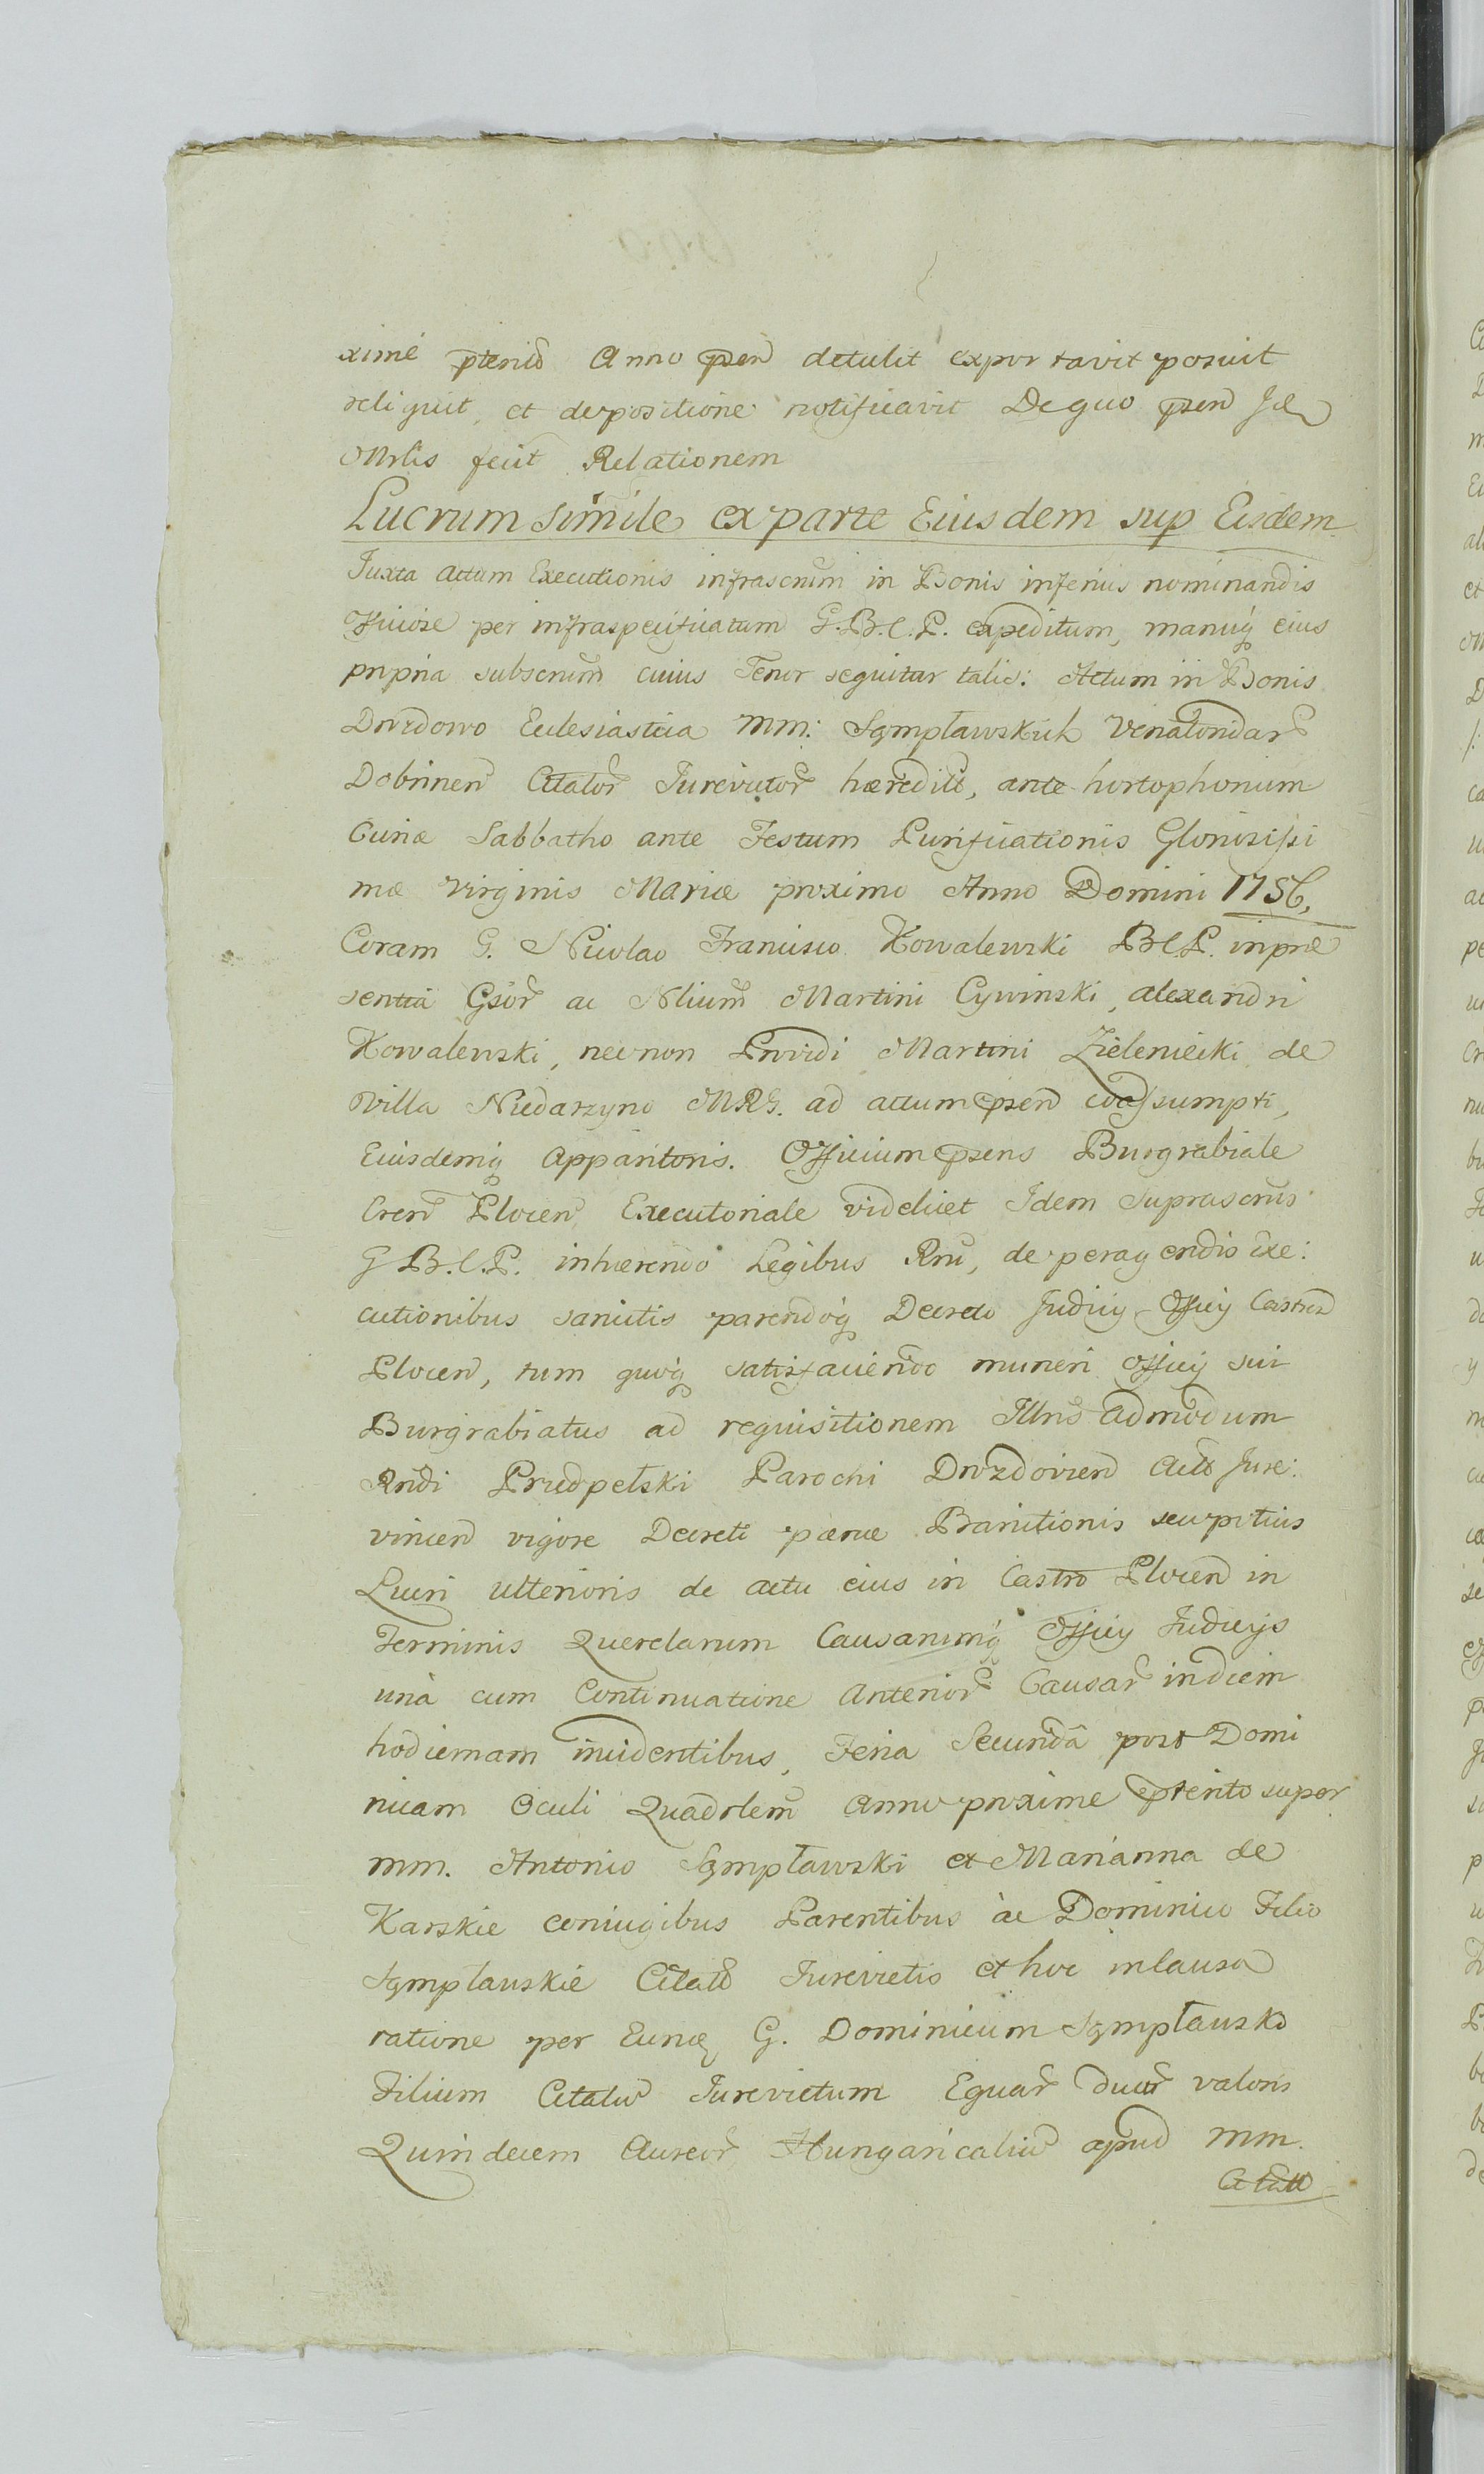 ximè pterito Anno psen detulit exportavit posuit
reliquit, et depositione notificavit De quo psen
Mrlis fecit Relationem
Lucrum simile ex parte Eiusdem sup Eisdem
Juxta actum Executionis infrascrum in Bonis inferius nominandis
Officiose per infraspecificatum G.B.C.P. expeditum, manuq eius
propria subscrum cuius Tenor sequitur talis: Actum in Bonis
Drozdowo Ecclesiastica MM: Sąmpławskich Venatoridar
Dobrinen Citator Jurevictor hæredit, ante hortophorium
Curiæ Sabbatho ante Festum Purificationis Gloriosissi
mæ Virginis Mariæ proximo Anno Domini 1756,
Coram G. Nicolao Francisco Kowalewski BCP. in præ
sentia Gsor ac Nlium Martini Cywinski, alexandri
Kowalewski, nec non Providi Martini Zieleniecki de
Villa Niedarzyno MRG. ad actum psen coassumpti,
Eiusdemq Apparitoris. Officium psens Burgrabiale
Cren Plocen Executoriale videlicet Idem Suprascrus
G B.C.P. inhærendo Legibus Rni, de peragendis exe:
cutionibus sancitis parendoq Decreto Judicij Officij Castren
Plocen, tum quoq satisfaciendo muneri officij sui
Burgrabiatus ad requisitionem Illris admodum
Rndi Przedpełski Parochi Drozdovien Act Jure:
vincen vigore Decreti pœnæ Banitionis seu potius
Lucri ulterioris de actu eius in Castro Plocen in
Terminis Querelarum Causarumq Officij Judicijs
unà cum Continuatione Anterior Causar in diem
hodiernam incidentibus, Feria Secundâ post Domi
nicam Oculi Quadrlem anno proxime pterito super
MM. Antonio Sąmpławski et Marianna de
Karskie coniugibus Parentibus àc Dominico Filio
Sąmpławskie Citatt Jurevictis et hoc in causa
ratione per Eunq G. Dominicum Sąmpławski
Filium Citatu Jurevictum Equar duar valoris
Quindecem Aureor Hungaricaliu apud MM.
Citatt